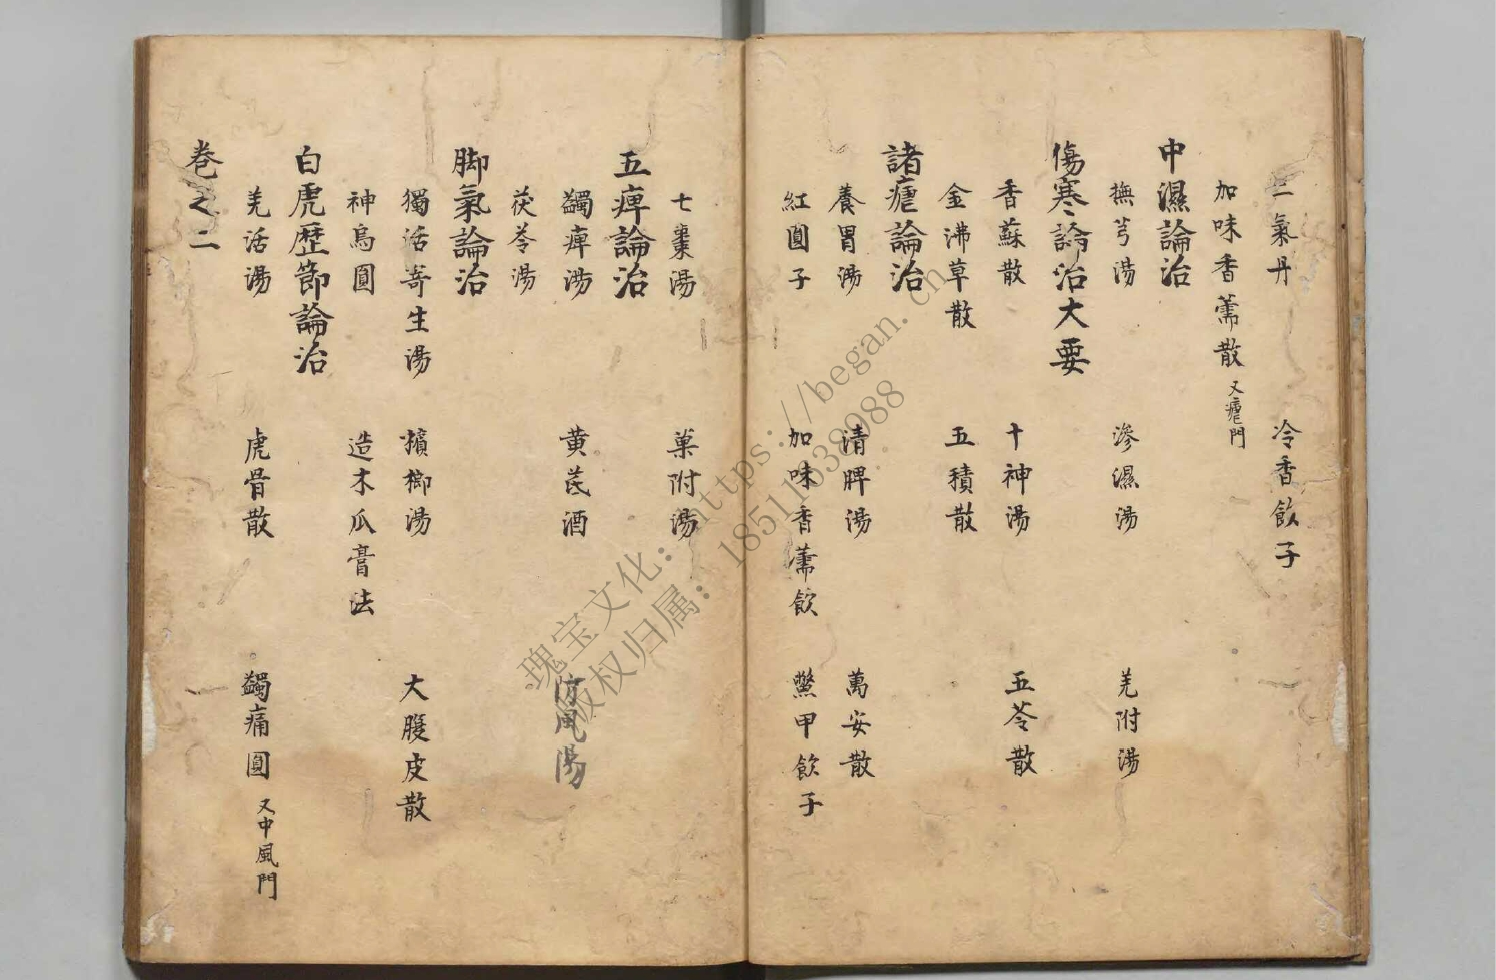 二氣丹 冷香飲子
加味香薷散 又瘧門
中濕論治
撫芎湯 滲濕湯 羌附湯
傷寒論治大要
香蘇散 十神湯 五苓散
金沸草散 五積散
諸瘧論治
養胃湯 清脾湯 萬安散
紅圓子 加味香薷飲 鱉甲飲子
七棗湯 菓附湯
五痺論治
蠲痺湯 黄芪酒 防風湯
茯苓湯
脚氣論治
獨活寄生湯 檳榔湯 大腹皮散
神烏圓 造木瓜膏法
白虎歴節論治
羌活湯 虎骨散 蠲痛圓 又中風門
卷之二
瑰宝文化：https://began.cn
版权归属：18511838988